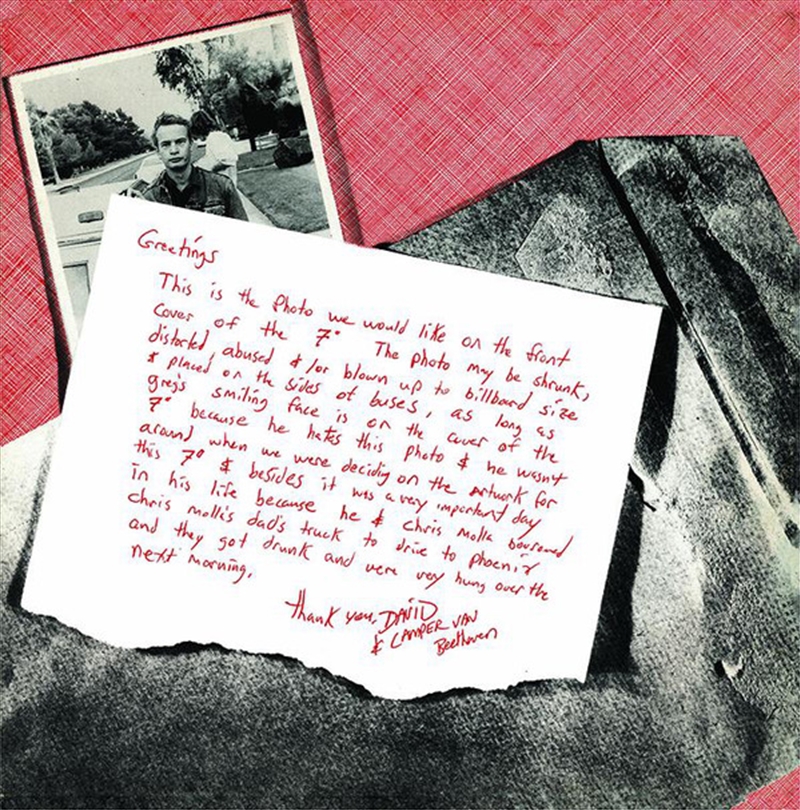 Greetings
This is the photo we would like on the front
cover of the 7" The photo may be shrunk,
distorted, abused &/or blown up to billboard size
& placed on the sides of buses, as long as
greg's smiling face is on the cover of the
7" because he hates this photo & he wasn't
around when we were decidig on the artwork for
this 7" & besides it was a very important day
in his life because he & chris molla borrowed
chris molla's dad's truck to drive to phoenix
and they got drunk and were very hung over the
next morning.
thank you, DAVID
& CAMPER VAN
Beethoven